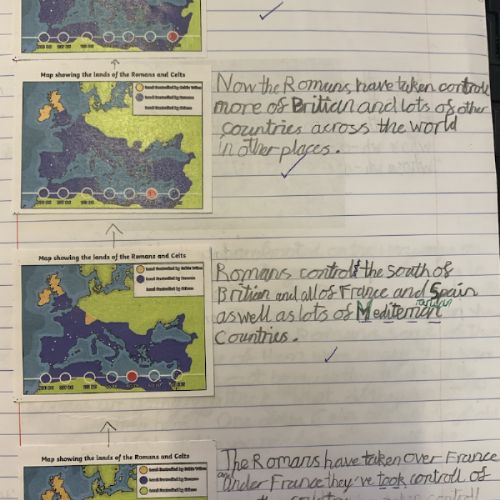 Map showing the lands of the Romans and Celts
Now the Romans have taken controle
more of Britian and lots of other
countries across the world
in other places.
Map showing the lands of the Romans and Celts
Land Controlled by Celtic Tribes
Land Controlled by Romans
Land Controlled by Others
Romans control the south of
Britian and all of France and Spain
as well as lots of Mediterrian
Countries.
Map showing the lands of the Romans and Celts
The Romans have taken over France
and under France they've took controll of